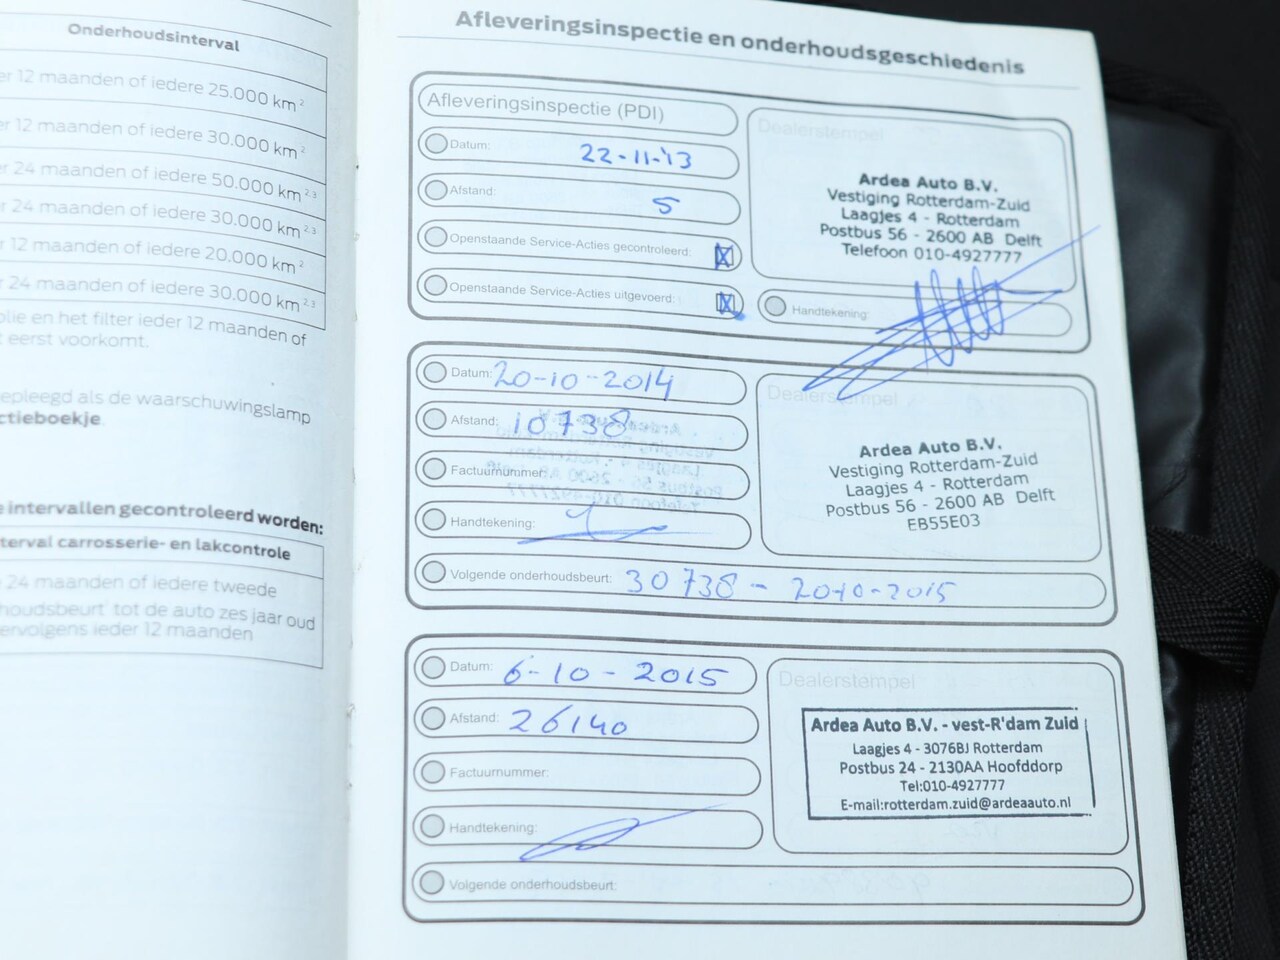 Onderhoudsinterval
er 12 maanden of iedere 25.000 km²
er 12 maanden of iedere 30.000 km²
er 24 maanden of iedere 50.000 km²,³
er 24 maanden of iedere 30.000 km²,³
r 12 maanden of iedere 20.000 km²
r 24 maanden of iedere 30.000 km²,³
olie en het filter ieder 12 maanden of
t eerst voorkomt.
epleegd als de waarschuwingslamp
ctieboekje.
e intervallen gecontroleerd worden:
terval carrosserie- en lakcontrole
24 maanden of iedere tweede
houdsbeurt tot de auto zes jaar oud
ervolgens ieder 12 maanden
Afleveringsinspectie en onderhoudsgeschiedenis
Afleveringsinspectie (PDI)
Datum: 22-11-'13
Afstand: 5
Openstaande Service-Acties gecontroleerd:
Openstaande Service-Acties uitgevoerd:
Dealerstempel
Ardea Auto B.V.
Vestiging Rotterdam-Zuid
Laagjes 4 - Rotterdam
Postbus 56 - 2600 AB Delft
Telefoon 010-4927777
Handtekening:
Datum: 20-10-2014
Afstand: 10738
Factuurnummer:
Handtekening:
Volgende onderhoudsbeurt: 30738 - 20-10-2015
Dealerstempel
Ardea Auto B.V.
Vestiging Rotterdam-Zuid
Laagjes 4 - Rotterdam
Postbus 56 - 2600 AB Delft
EB55E03
Datum: 6-10-2015
Afstand: 26140
Factuurnummer:
Handtekening:
Volgende onderhoudsbeurt:
Dealerstempel
Ardea Auto B.V. - vest-R'dam Zuid
Laagjes 4 - 3076BJ Rotterdam
Postbus 24 - 2130AA Hoofddorp
Tel:010-4927777
E-mail:rotterdam.zuid@ardeaauto.nl